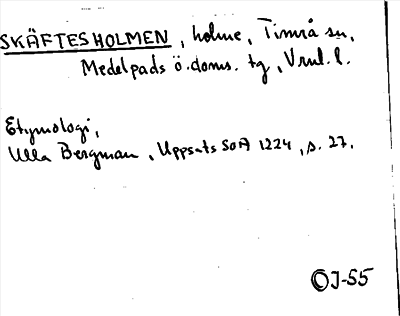 SKÄFTESHOLMEN, holme, Timrå sn,
Medelpads ö. doms. tg, Vnrl. l.
Etymologi,
Ulla Bergman, Uppsats SOA 1224, s. 27.
OJ-55